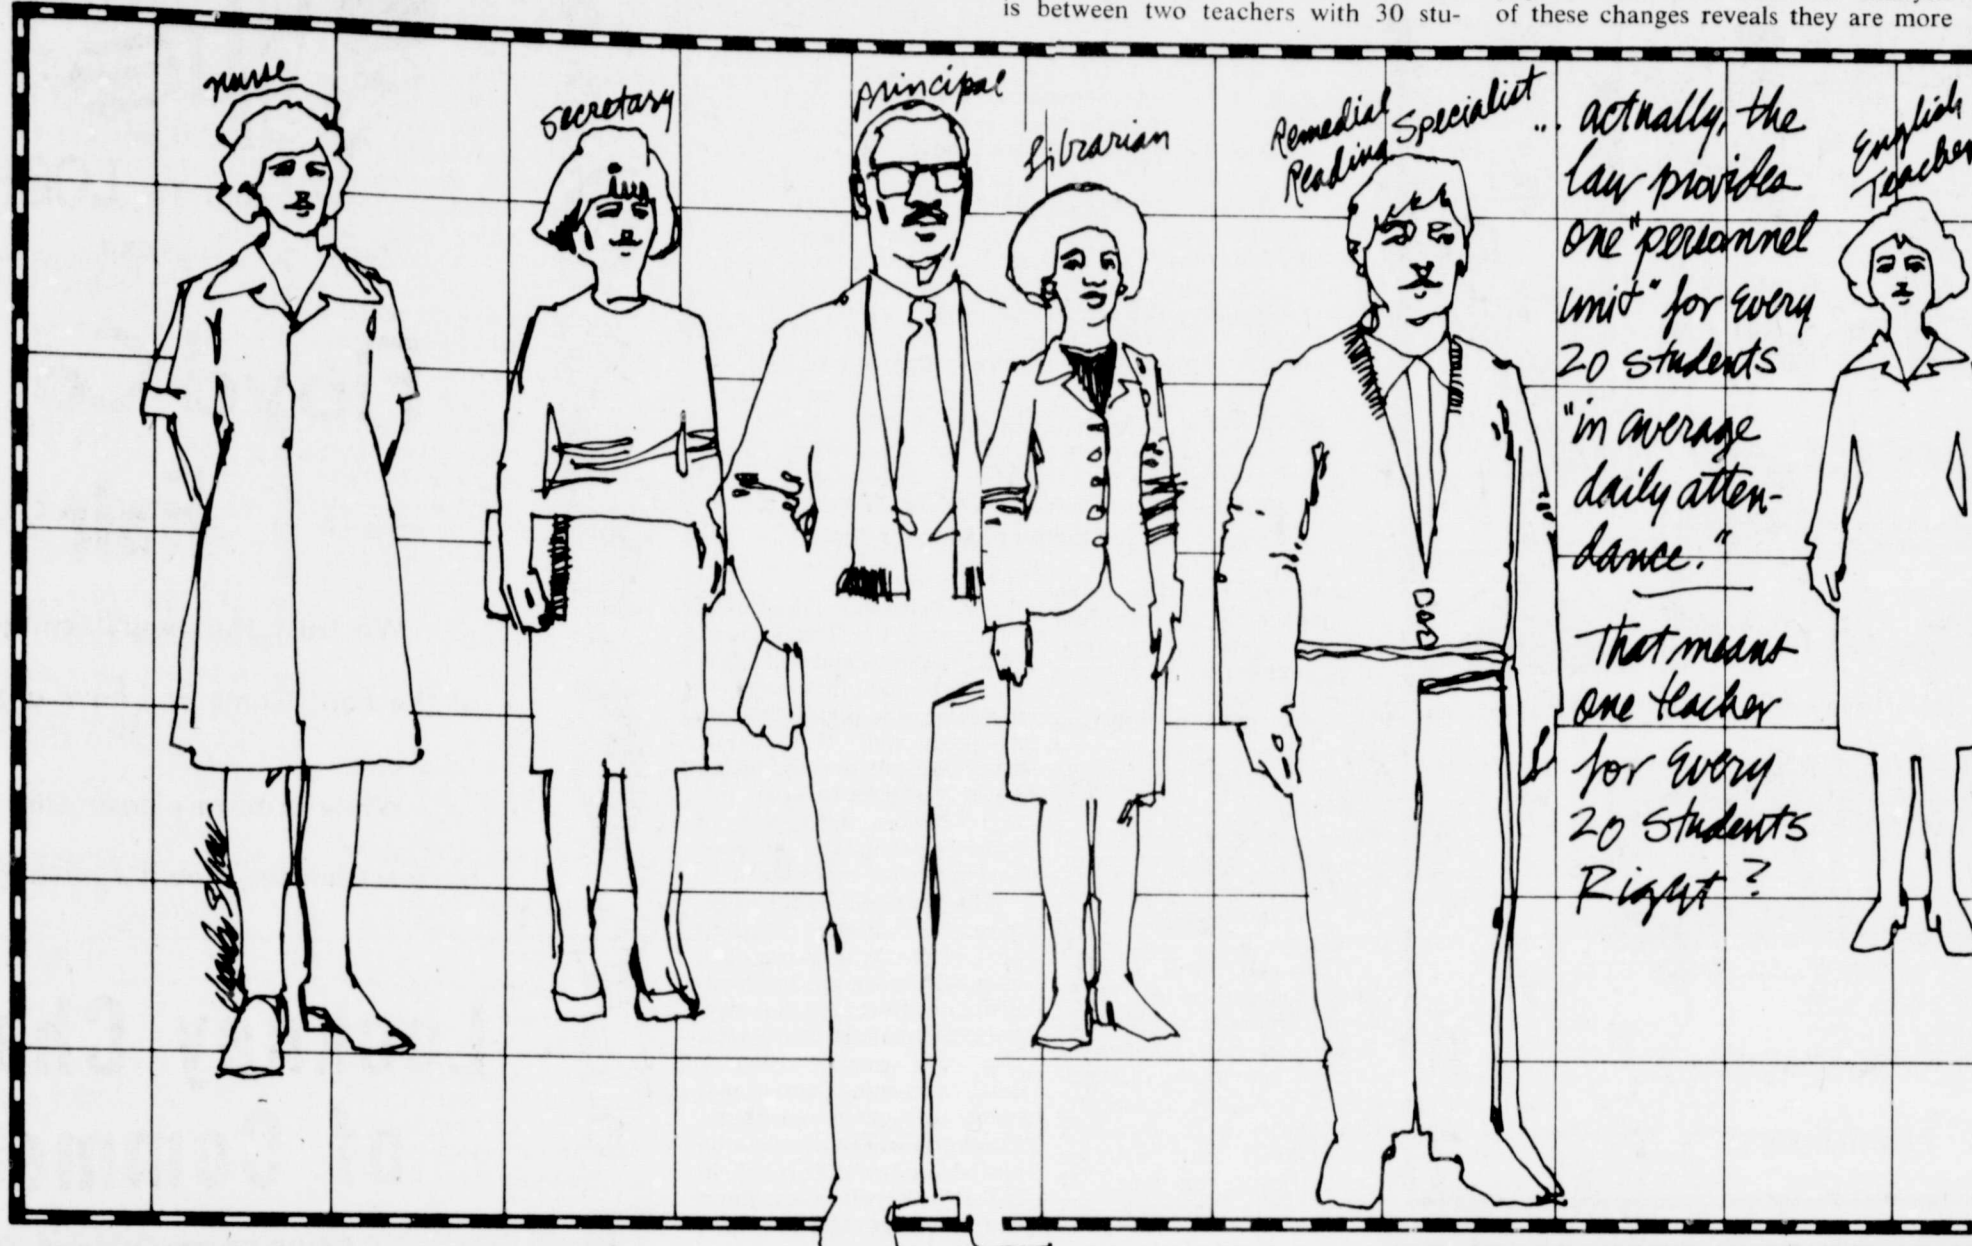 is between two teachers with 30 stu-
of these changes reveals they are more
nurse
secretary
principal
Librarian
Remedial
Reading Specialist
... actually, the
law provides
one "personnel
unit" for every
20 students
"in average
daily atten-
dance."
That means
one teacher
for every
20 students
Right?
English
Teacher